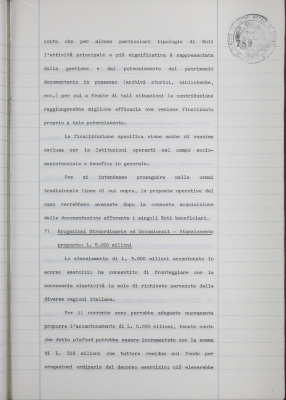 conto che per alcune particolari tipologie di Enti
l'attività principale e più significativa è rappresentata
dalla gestione e dal potenziamento del patrimonio
documentario in possesso (archivi storici, biblioteche,
ecc.) per cui a fronte di tali situazioni la contribuzione
raggiungerebbe migliore efficacia ove venisse finalizzata
proprio a tale potenziamento.
La finalizzazione specifica viene anche di massima
esclusa per le Istituzioni operanti nel campo socio-
assistenziale e benefico in generale.
Ove si intendesse proseguire nella ormai
tradizionale linea di cui sopra, le proposte operative del
caso verrebbero avanzate dopo la consueta acquisizione
della documentazione afferente i singoli Enti beneficiari.
Erogazioni Straordinarie ed Occasionali - Stanziamento
proposto: L. 5.000 milioni
Lo stanziamento di L. 5.000 milioni accantonato lo
scorso esercizio ha consentito di fronteggiare con la
necessaria elasticità la mole di richieste pervenute dalle
diverse regioni italiane.
Per il corrente anno parrebbe adeguato nuovamente
proporre l'accantonamento di L. 5.000 milioni, tenuto conto
che detto plafond potrebbe essere incrementato con la somma
di L. milioni che tuttora residua sul fondo per
erogazioni ordinarie del decorso esercizio; ciò eleverebbe